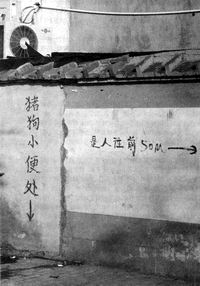 猪狗小便处↓
是人往前50M→